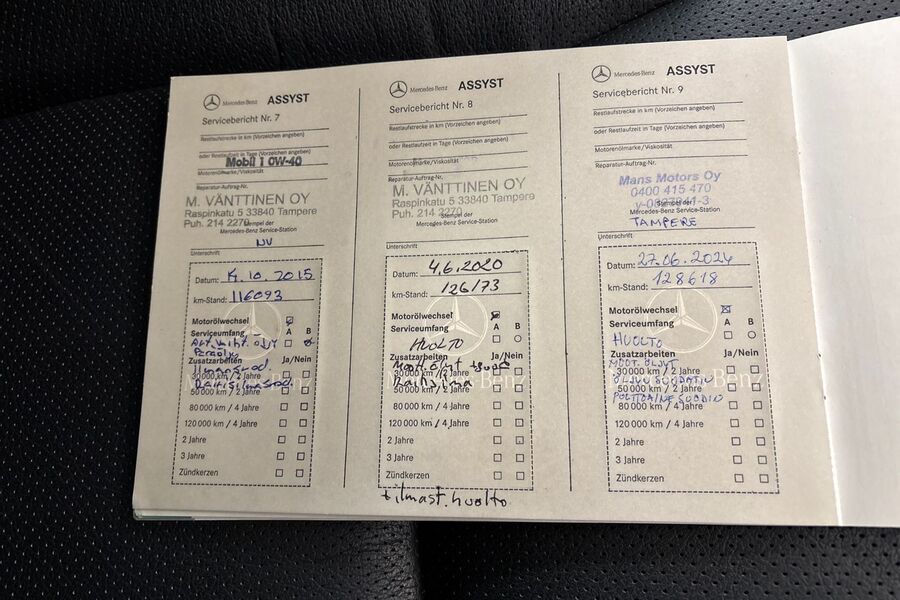 Mercedes-Benz ASSYST
Servicebericht Nr. 7
Restlaufstrecke in km (Vorzeichen angeben)
oder Restlaufzeit in Tage (Vorzeichen angeben)
Mobil 1 0W-40
Motorenölmarke/Viskosität
Reparatur-Auftrag-Nr.
M. VÄNTTINEN OY
Raspinkatu 5 33840 Tampere
Puh. 214 2270
Stempel der
Mercedes-Benz Service-Station
Unterschrift
Datum: 10.2015
km-Stand: 116093
Motorölwechsel
Serviceumfang A B
Zusatzarbeiten Ja/Nein
30 000 km / 2 Jahre
50 000 km / 2 Jahre
80 000 km / 4 Jahre
120 000 km / 4 Jahre
2 Jahre
3 Jahre
Zündkerzen
Mercedes-Benz ASSYST
Servicebericht Nr. 8
Restlaufstrecke in km (Vorzeichen angeben)
oder Restlaufzeit in Tage (Vorzeichen angeben)
Motorenölmarke/Viskosität
Reparatur-Auftrag-Nr.
M. VÄNTTINEN OY
Raspinkatu 5 33840 Tampere
Puh. 214 2270
Stempel der
Mercedes-Benz Service-Station
Unterschrift
Datum: 4.6.2020
km-Stand: 126173
Motorölwechsel
Serviceumfang A B
HUOLTO
Zusatzarbeiten Ja/Nein
30 000 km / 2 Jahre
Raitisilma
50 000 km / 2 Jahre
80 000 km / 4 Jahre
120 000 km / 4 Jahre
2 Jahre
3 Jahre
Zündkerzen
ilmast. huolto
Mercedes-Benz ASSYST
Servicebericht Nr. 9
Restlaufstrecke in km (Vorzeichen angeben)
oder Restlaufzeit in Tage (Vorzeichen angeben)
Motorenölmarke/Viskosität
Reparatur-Auftrag-Nr.
Mans Motors Oy
0400 415 470
Stempel der
Mercedes-Benz Service-Station
TAMPERE
Unterschrift
Datum: 27.06.2024
km-Stand: 128618
Motorölwechsel
Serviceumfang A B
HUOLTO
Zusatzarbeiten Ja/Nein
MOOT. ÖLJYT
30 000 km / 2 Jahre
ÖLJYN SUODATIN
50 000 km / 2 Jahre
POLTTOAINE SUODIN
80 000 km / 4 Jahre
120 000 km / 4 Jahre
2 Jahre
3 Jahre
Zündkerzen